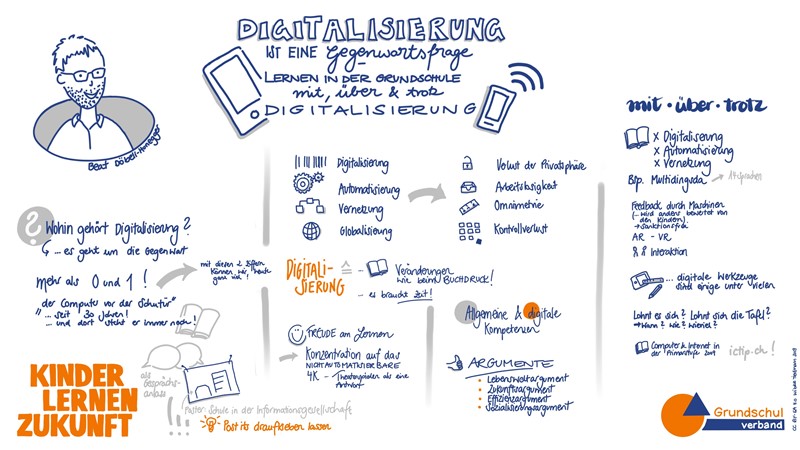 DIGITALISIERUNG
IST EINE Gegenwartsfrage
LERNEN IN DER GRUNDSCHULE
mit, über & trotz
DIGITALISIERUNG
Beat Döbeli-Honegger
? Wohin gehört Digitalisierung?
... es geht um die Gegenwart
mehr als 0 und 1!
mit diesen 2 Ziffern
können wir heute
ganz viel!
"der Computer vor der Schultür"
... seit 30 Jahren!
... und dort steht er immer noch!
als
Gesprächs-
anlass
KINDER
LERNEN
ZUKUNFT
!!! Poster: Schule in der Informationsgesellschaft
Post its draufkleben lassen
Digitalisierung
Automatisierung
Vernetzung
Globalisierung
Verlust der Privatsphäre
Arbeitslosigkeit
Omnimetrie
Kontrollverlust
DIGITALI-
SIERUNG
Veränderungen
wie beim BUCHDRUCK!
- es braucht Zeit!
FREUDE am Lernen
Konzentration auf das
NICHT AUTOMATISIERBARE
4K - Theaterspielen als eine
Antwort
Allgemeine & digitale
Kompetenzen
ARGUMENTE
• Lebensweltargument
• Zukunftsargument
• Effizienzargument
• Sozialisierungsargument
mit • über • trotz
x Digitalisierung
x Automatisierung
x Vernetzung
Bsp. Multidingsda
Feedback durch Maschinen
(... wird anders bewertet von
den Kindern)
→ Sanktionsfrei
AR - VR
Interaktion
... digitale Werkzeuge
sind eine unter vielen
Lohnt es sich? Lohnt sich die Tafel?
→ Wann? Wie? Wieviel?
! Computer & Internet in
der Primarstufe
ictip.ch!
Grundschul
verband